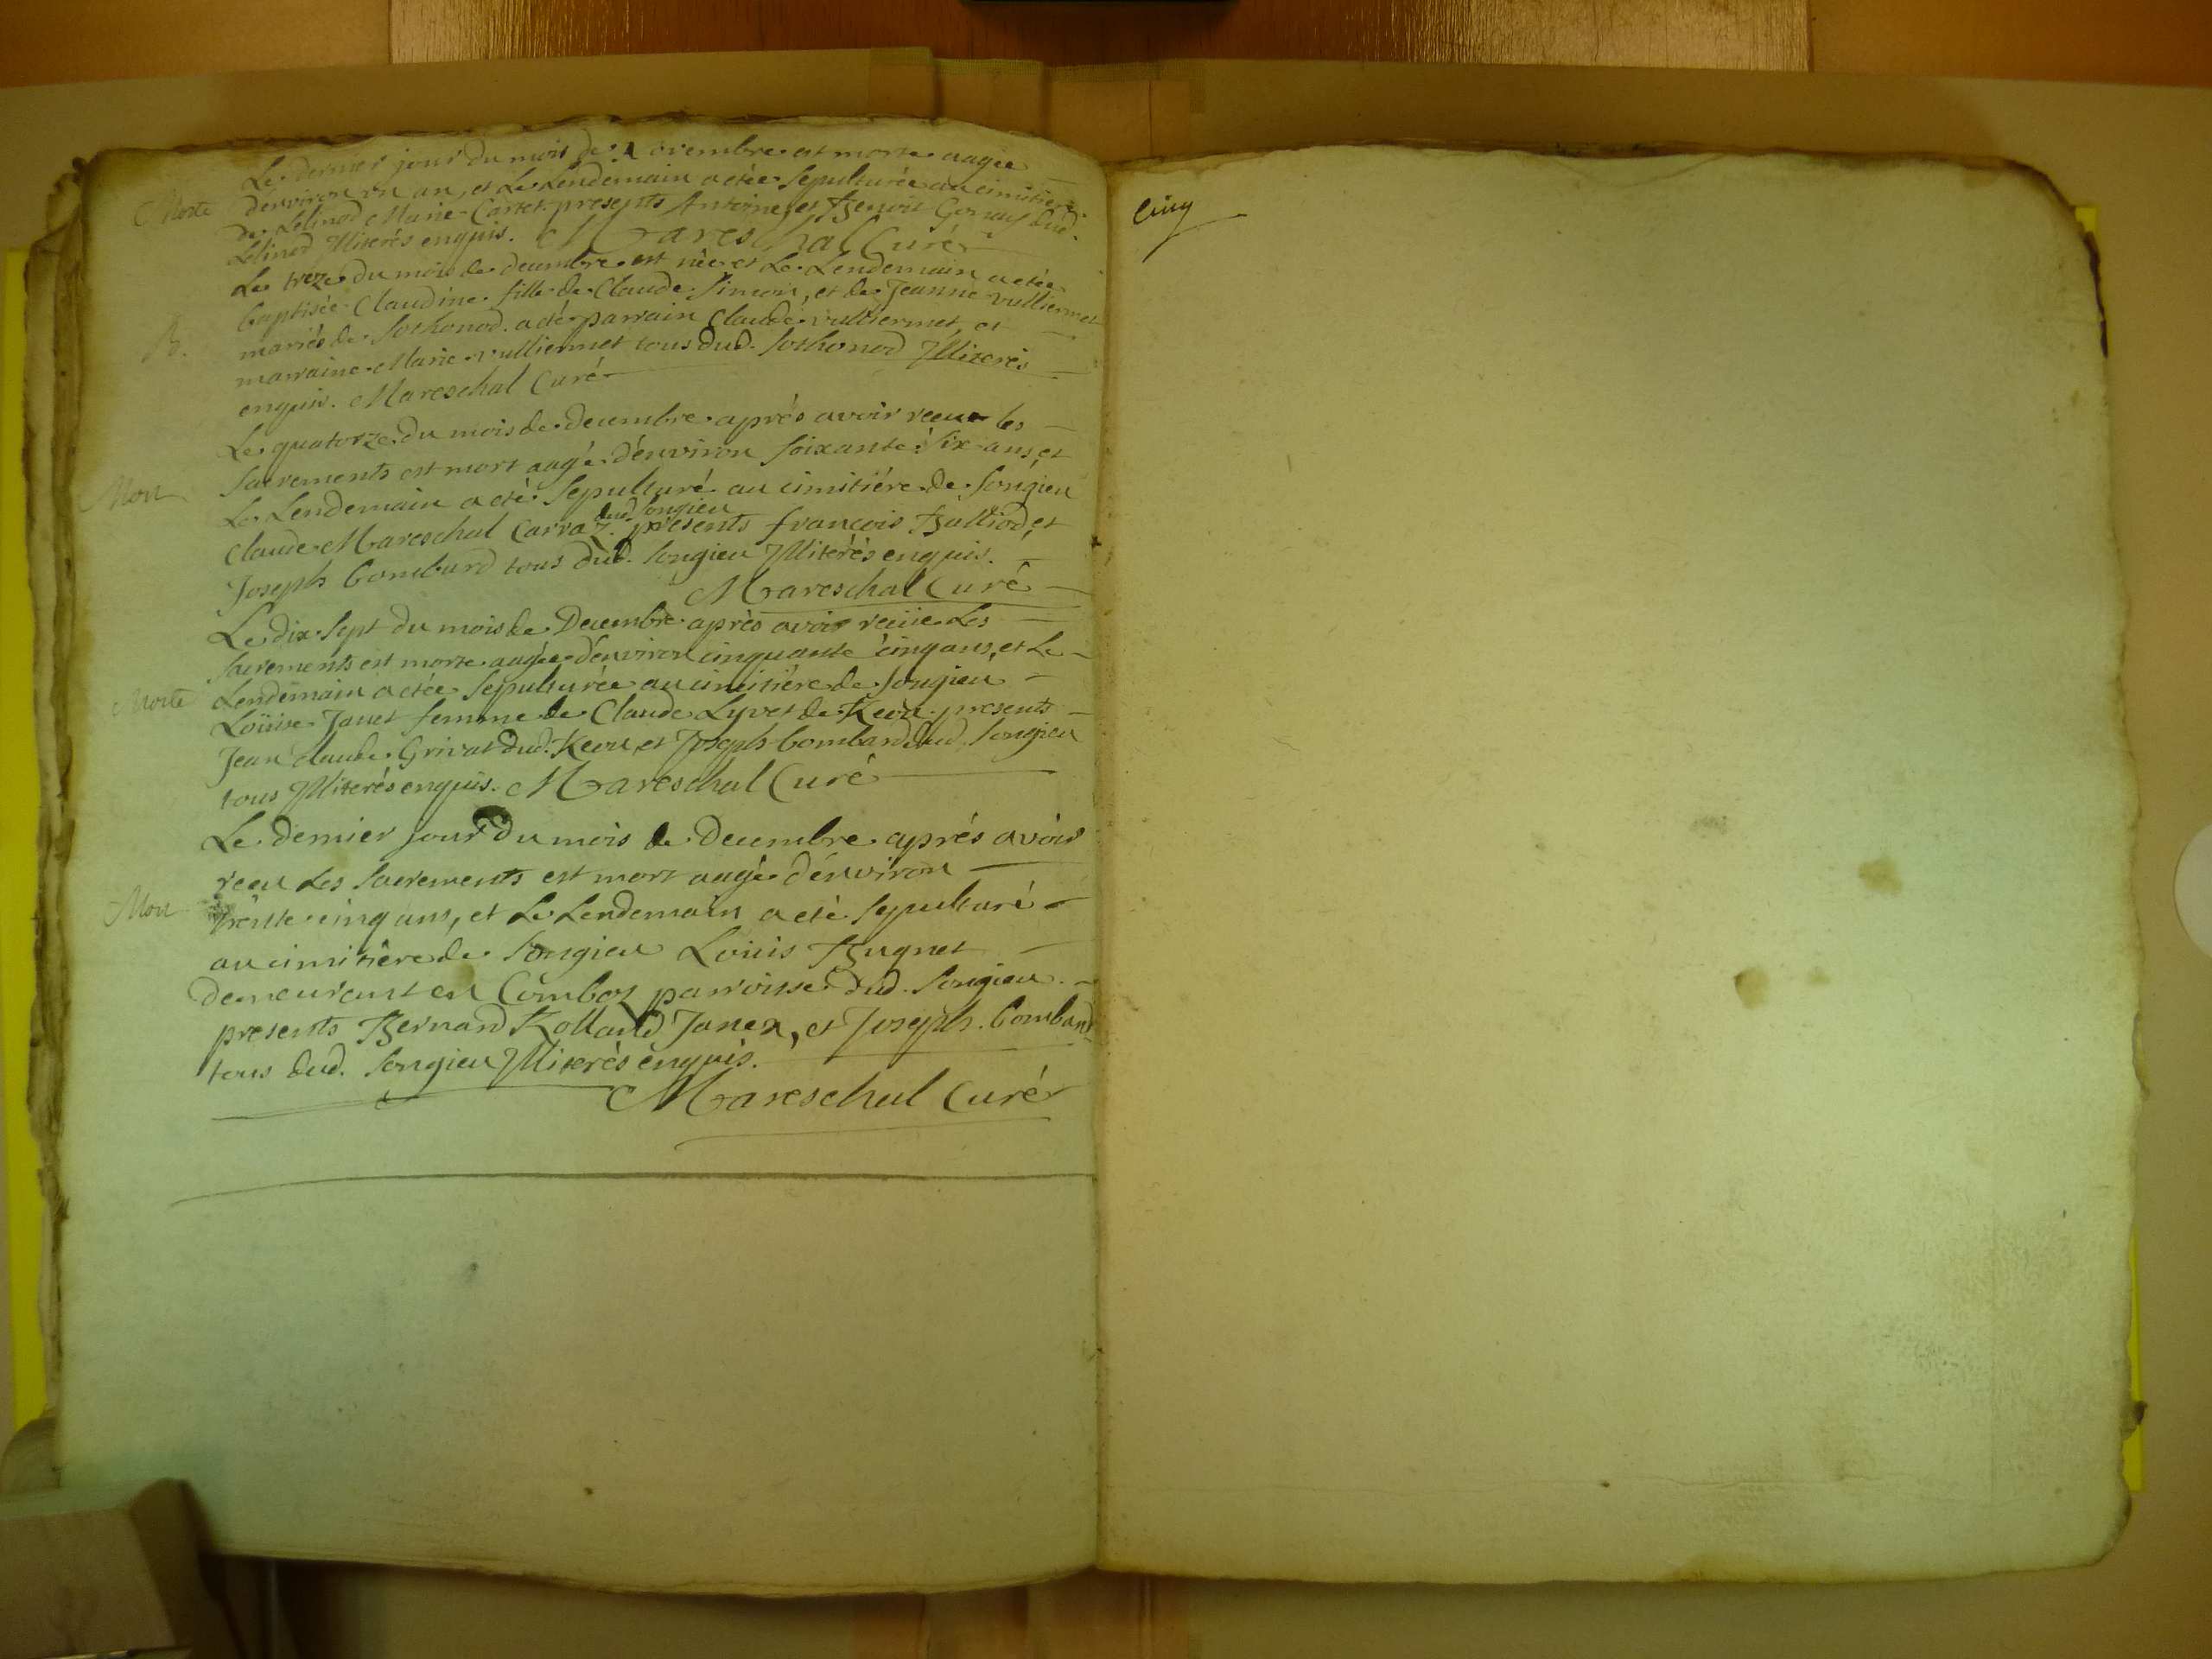 Le dernier jour du mois de Novembre est morte aagée
Morte denviron un an, et Le Lendemain a etée Sepulturée au cimitiere
de Lilinod Marie Cartet. presents Antoine, et Benoit Gonay dud.
Lilinod Illiterés enquis. Mareschal Curé
Le treze du mois de decembre est née et Le Lendemain a etée
baptisée Claudine fille de Claude Simon, et de Jeanne vulliermet
B. mariés de Sothonod. a eté parrain Claude vulliermet, et
marraine Marie vulliermet tous dud. Sothonod Illiterés
enquis. Mareschal Curé
Le quatorze du mois de decembre après avoir receu les
Sacrements est mort aagé d'énviron soixante Six ans, et
Mort Le Lendemain a eté Sepulturé au cimitiére de Songieu
Claude Mareschal Carraz dud. Songieu. presents francois Balliod, et
Joseph bombard tous dud. Songieu Illiterés enquis.
Mareschal Curé
Le dix Sept du mois de Decembre après avoir reciie Les
Sacrements est morte aagée d'énviron cinquante cinq ans, et Le
Morte Lendemain a etée Sepulturée au cimitiére de Songieu
Loüise Janet femme de Claude Lyvet de presents
Jean claude Grivat dud. et Joseph bombard dud. Songieu
tous Illiterés enquis. Mareschal Curé
Le dernier Jour du mois de Decembre aprés avoir
receu Les Sacrements est mort aagé d'énviron
Mort trente cinq ans, et Le Lendemain a eté Sepulturé
au cimitiére de Songieu Loüis Bugnet
demeurant en Combez parroisse dud. Songieu.
presents Bernard Rolland Janex, et Joseph. bombard
tous dud. Songieu Illiterés enquis.
Mareschal Curé
cinq